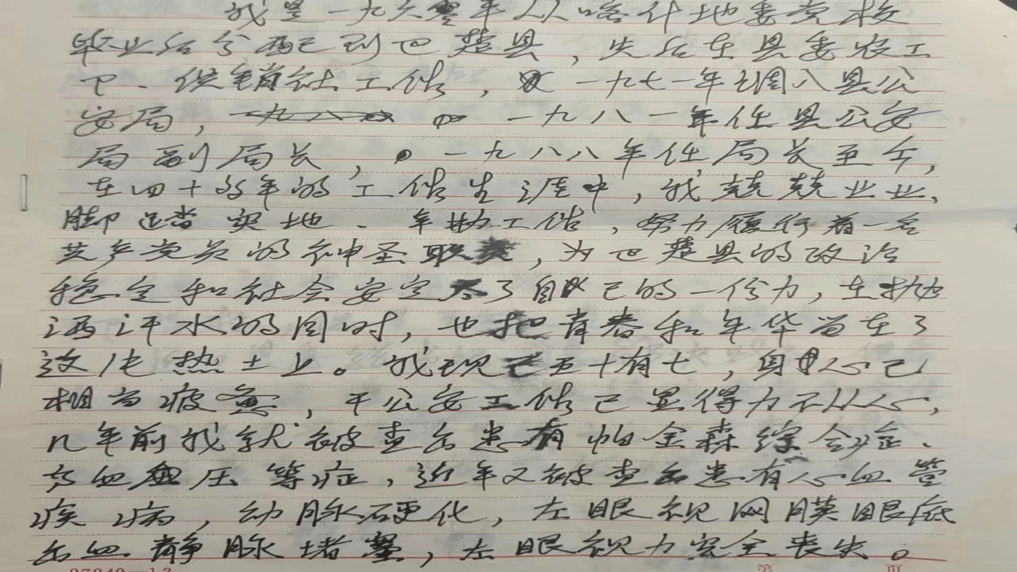 我是一九六零年从喀什地委党校
毕业后分配到巴楚县，先后在县委农工
下、供销社工作，一九七一年调入县公
安局，一九八一年任县公安
局副局长，一九八八年任局长至今，
在四十多年的工作生涯中，我兢兢业业、
脚踏实地、辛勤工作，努力履行着一名
共产党员的神圣职责，为巴楚县的政治
稳定和社会安定尽了自己的一份力，在挥
洒汗水的同时，也把青春和年华留在了
这片热土上。我现已五十有七，身心已
相当疲惫，干公安工作已显得力不从心，
几年前我就被查出患有帕金森综合症、
高血压等症，近年又被查出患有心血管
疾病，动脉硬化，左眼视网膜眼底
出血静脉堵塞，左眼视力完全丧失。